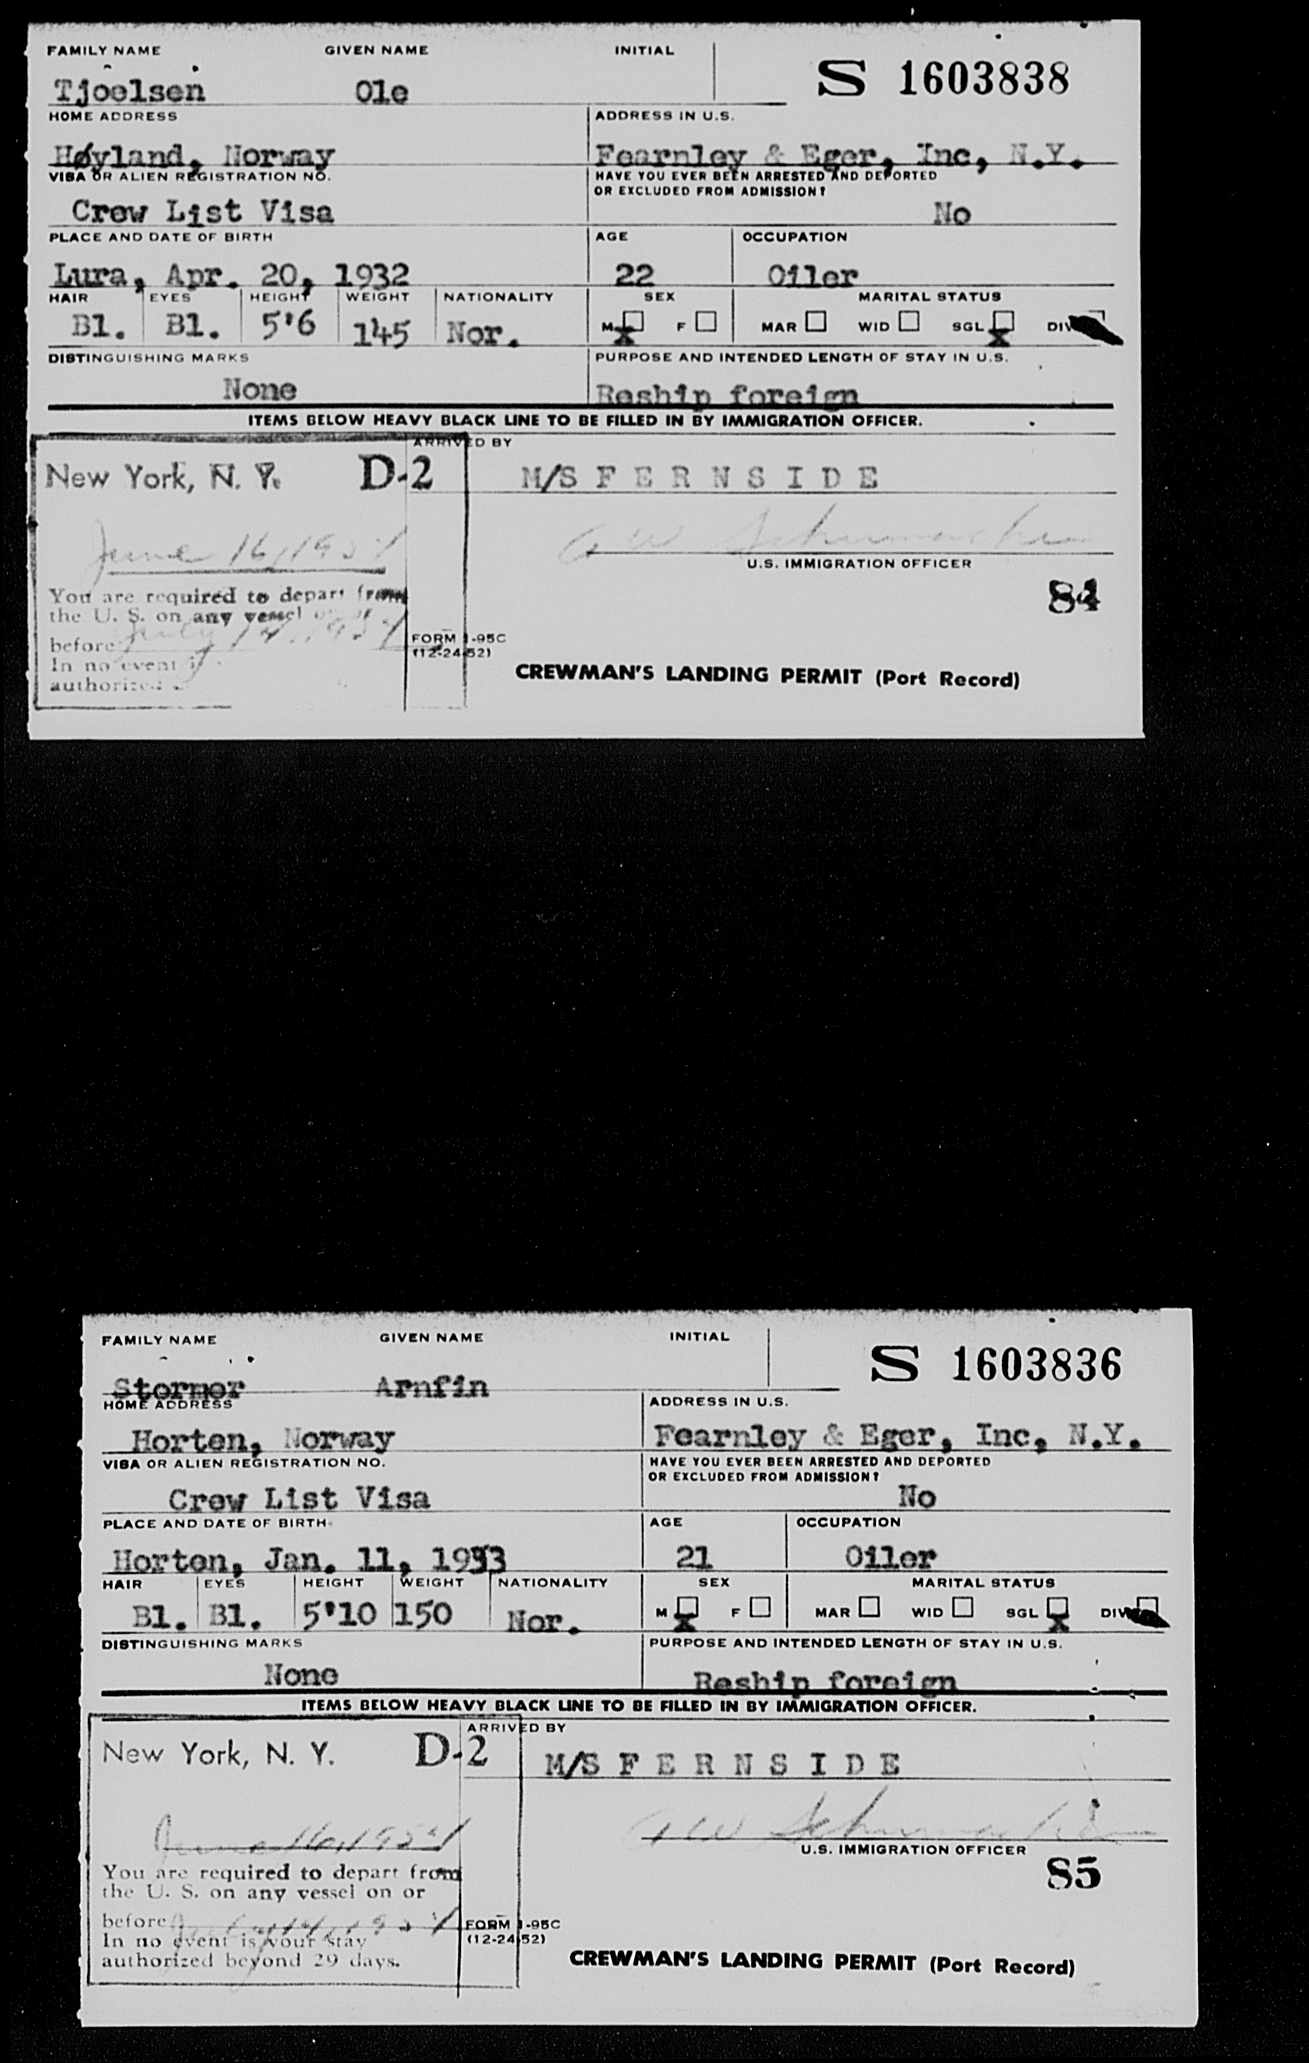 FAMILY NAME GIVEN NAME INITIAL
S 1603838
Tjoelsen Ole
HOME ADDRESS ADDRESS IN U.S.
Høyland, Norway Fearnley & Eger, Inc, N.Y.
VISA OR ALIEN REGISTRATION NO. HAVE YOU EVER BEEN ARRESTED AND DEPORTED
OR EXCLUDED FROM ADMISSION?
Crew List Visa No
PLACE AND DATE OF BIRTH AGE OCCUPATION
Lura, Apr. 20, 1932 22 Oiler
HAIR EYES HEIGHT WEIGHT NATIONALITY SEX MARITAL STATUS
Bl. Bl. 5'6 145 Nor. M X F MAR WID SGL X DIV
DISTINGUISHING MARKS PURPOSE AND INTENDED LENGTH OF STAY IN U.S.
None Reship foreign
ITEMS BELOW HEAVY BLACK LINE TO BE FILLED IN BY IMMIGRATION OFFICER.
ARRIVED BY
New York, N. Y. D-2 M/S FERNSIDE
June 16, 1954 A W Schumacher
U.S. IMMIGRATION OFFICER
You are required to depart from
84
the U. S. on any vessel on or
before July 14, 1954 FORM I-95C
In no event (12-24-52)
authorized
CREWMAN'S LANDING PERMIT (Port Record)
FAMILY NAME GIVEN NAME INITIAL
S 1603836
Stormer Arnfin
HOME ADDRESS ADDRESS IN U.S.
Horten, Norway Fearnley & Eger, Inc, N.Y.
VISA OR ALIEN REGISTRATION NO. HAVE YOU EVER BEEN ARRESTED AND DEPORTED
OR EXCLUDED FROM ADMISSION?
Crew List Visa No
PLACE AND DATE OF BIRTH AGE OCCUPATION
Horten, Jan. 11, 1933 21 Oiler
HAIR EYES HEIGHT WEIGHT NATIONALITY SEX MARITAL STATUS
Bl. Bl. 5'10 150 Nor. M X F MAR WID SGL X DIV
DISTINGUISHING MARKS PURPOSE AND INTENDED LENGTH OF STAY IN U.S.
None Reship foreign
ITEMS BELOW HEAVY BLACK LINE TO BE FILLED IN BY IMMIGRATION OFFICER.
ARRIVED BY
New York, N. Y. D-2 M/S FERNSIDE
June 16, 1954 A W Schumacher
U.S. IMMIGRATION OFFICER
You are required to depart from
85
the U. S. on any vessel on or
before July 14, 1954 FORM I-95C
In no event is your stay (12-24-52)
authorized beyond 29 days.
CREWMAN'S LANDING PERMIT (Port Record)